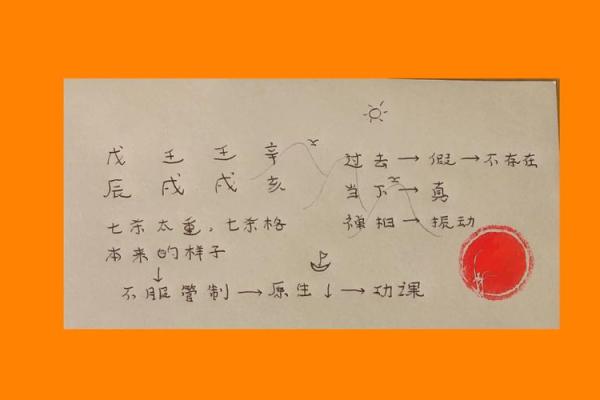 戊 壬 壬 辛
辰 戌 戌 亥
七杀太重，七杀格
本来的样子
↓
不服管制→原生↓→功课
过去→假→不存在
当下→真
禅相→振动